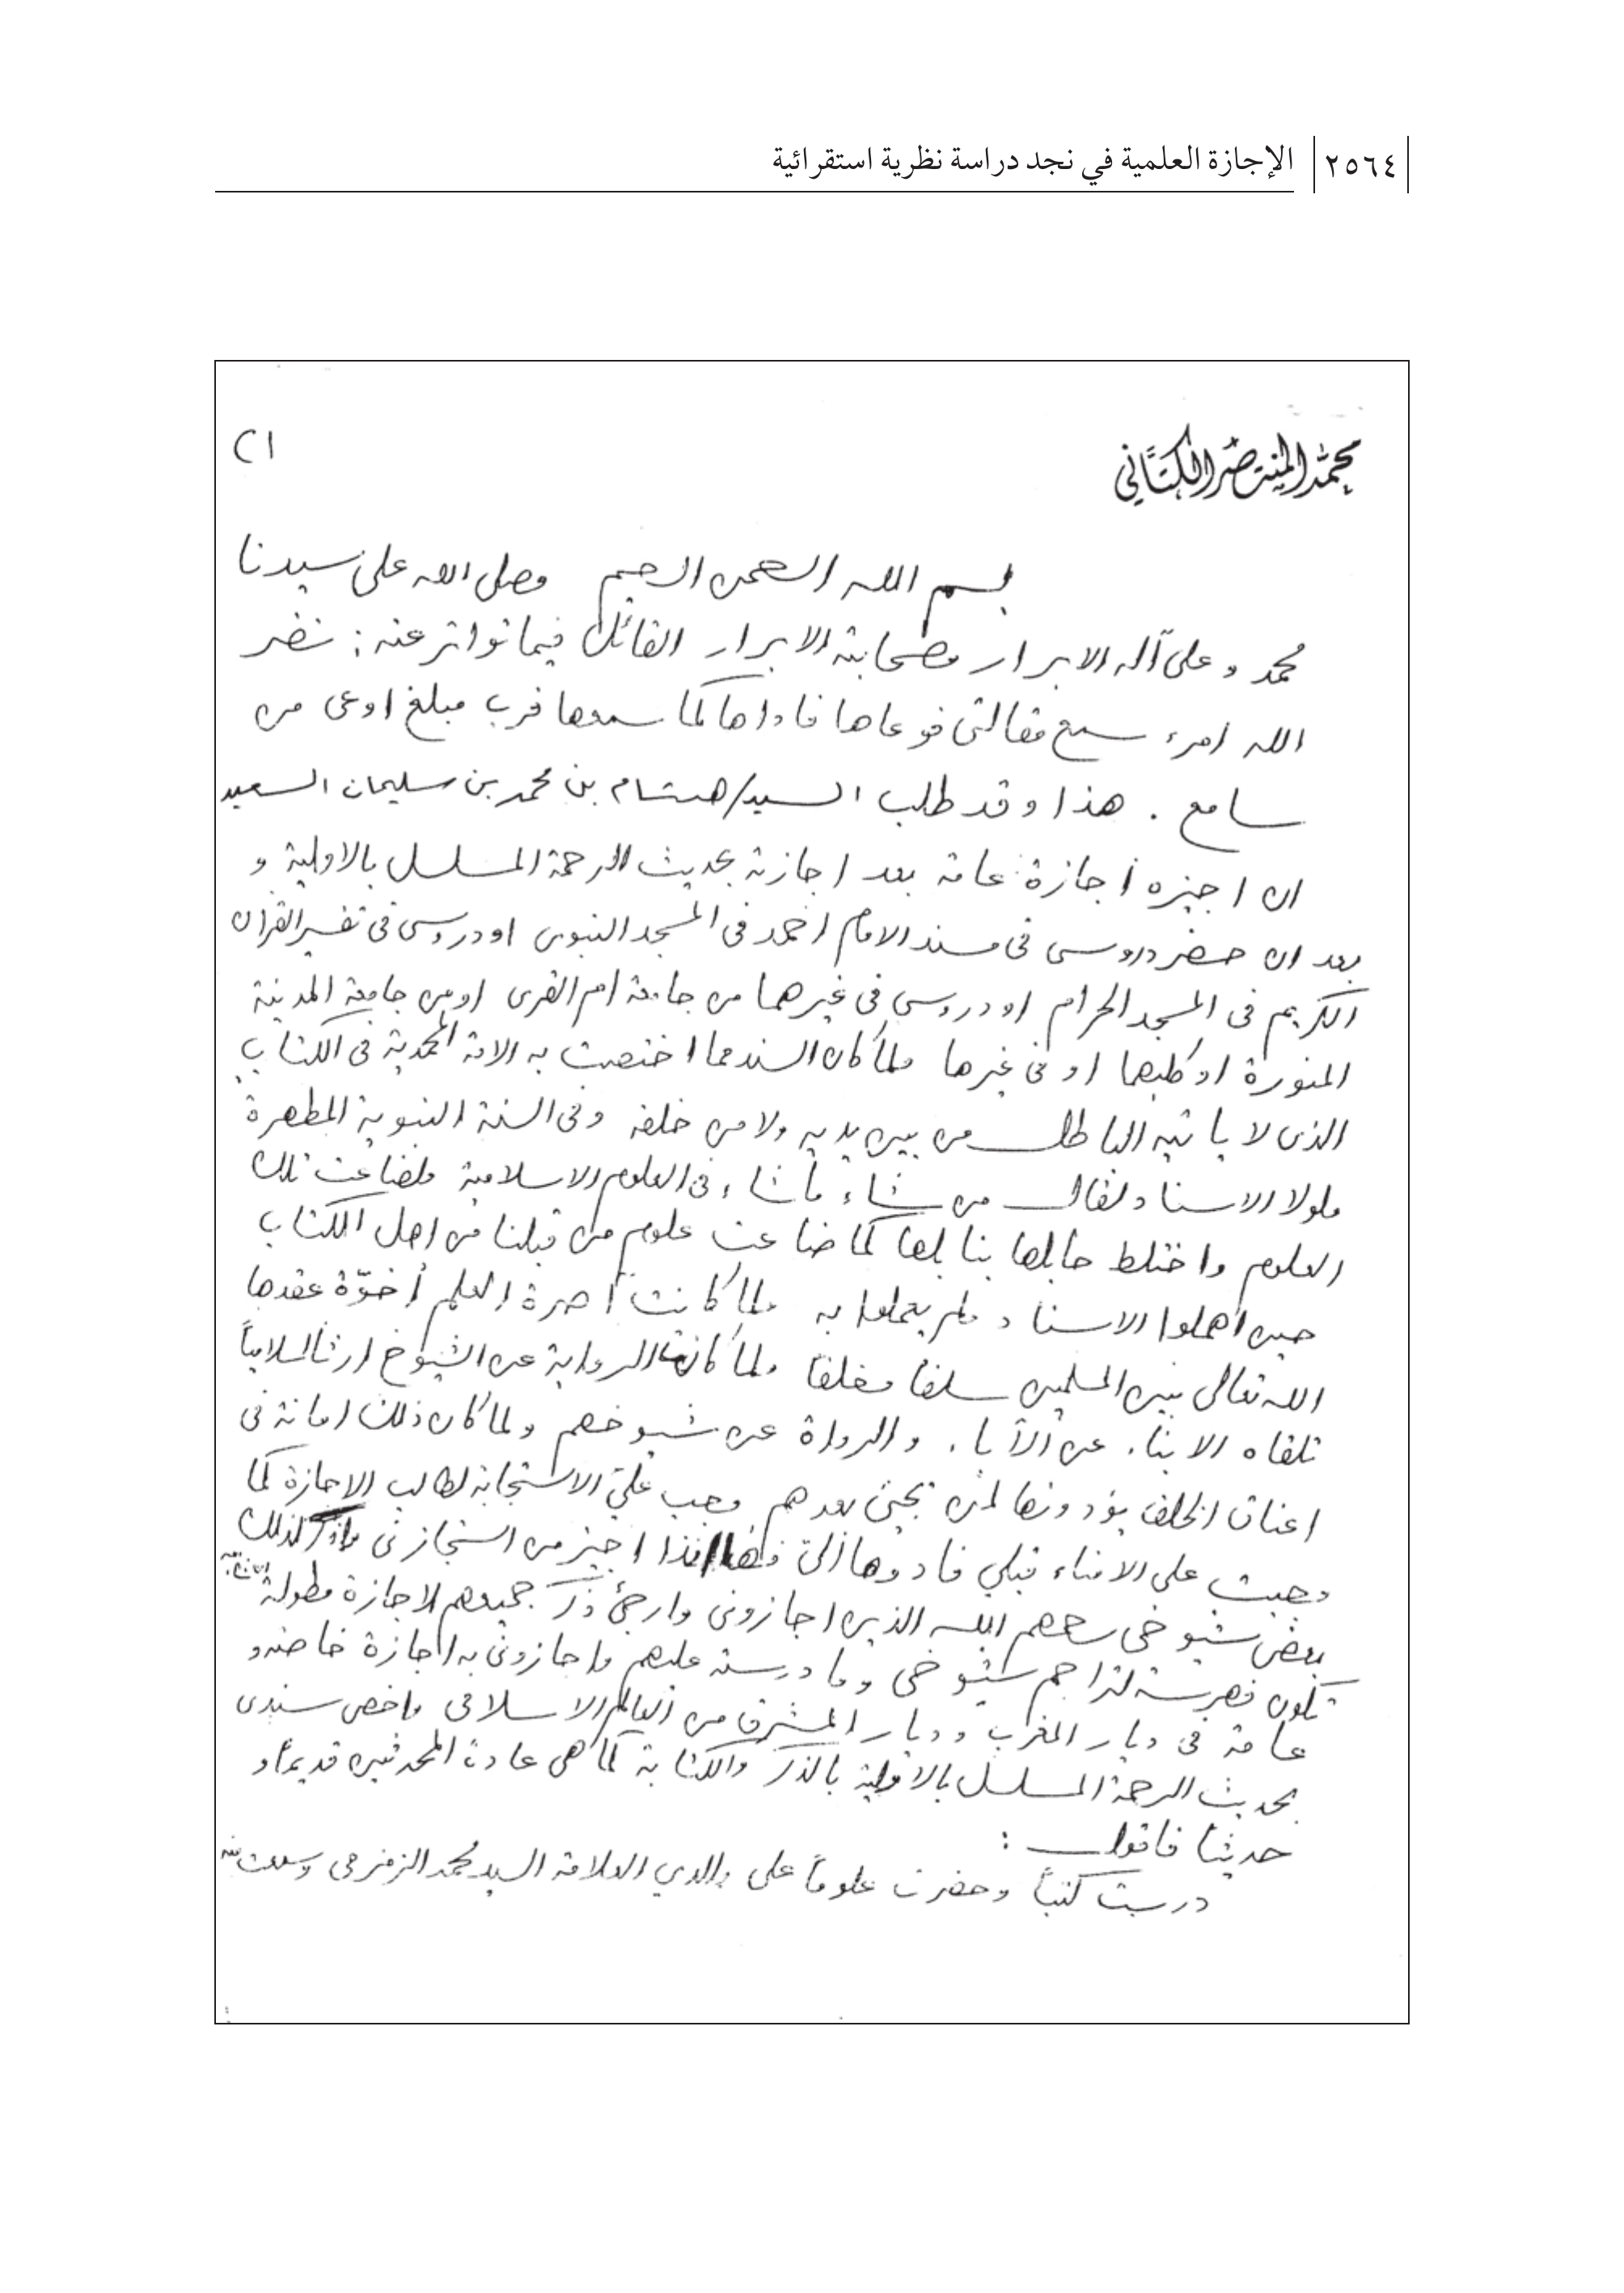 ٢٥٦٤ الإجازة العلمية في نجد دراسة نظرية استقرائية
محمد المنتصر الكتاني
بسم الله الرحمن الرحيم وصلى الله على سيدنا
محمد وعلى آله الابرار وصحابته الابرار القائل فيما تواتر عنه: نضر
الله امرء سمع مقالتى فوعاها فاداها كما سمعها فرب مبلغ اوعى من
سامع . هذا وقد طلب السيد/هشام بن محمد بن سليمان السعيد
ان اجيزه أجازة عامة بعد اجازته بحديث الرحمة المسلسل بالاولية و
بعد ان حضر دروسى فى مسند الامام احمد فى المسجد النبوى او دروسى فى تفسير القران
الكريم فى المسجد الحرام او دروسى فى غيرهما من جامعة ام القرى او من جامعة المدينة
المنورة او كليهما او فى غيرها ولما كان السند مما اختصت به الامة المحمدية فى الكتاب
الذى لا ياتيه الباطل من بين يديه ولا من خلفه وفى السنة النبوية المطهرة
ولولا الاسناد لقال من شاء ما شاء فى العلوم الاسلامية ولضاعت تلك
العلوم واختلط حابلها بنابلها كما ضاعت علوم من قبلنا من اهل الكتاب
حين اهملوا الاسناد ولم يعملوا به ولما كانت اصرة العلم أخوّة عقدها
الله تعالى بين المسلمين سلفا وخلفا ولما كانت الرواية عن الشيوخ ارثا
تلقاه الابناء عن الآباء والرواة عن شيوخهم ولما كان ذلك امانة فى
اعناق الخلف يؤدونها لمن يجئ بعدهم وجب عليّ الاستجابة لطالب الاجازة كما
وجبت على الامناء قبلي فادوها الىّ اجيز من استجازنى واذكر لذلك
بعض شيوخى رحمهم الله الذين اجازونى وارجئ ذكر جميعهم لاجازة مطولة
تكون فهرسة لتراجم شيوخى وما درسته عليهم واجازونى به اجازة خاصة و
عامة فى ديار المغرب وديار المشرق من العالم الاسلامى واخص سندى
بحديث الرحمة المسلسل بالاولية بالذكر والكتابة كما هى عادة المحدثين قديما و
حديثا فاقول :
درست كتباً وحضرت علوماً على والدي العلامة السيد محمد الزمزمى وسمعت منه